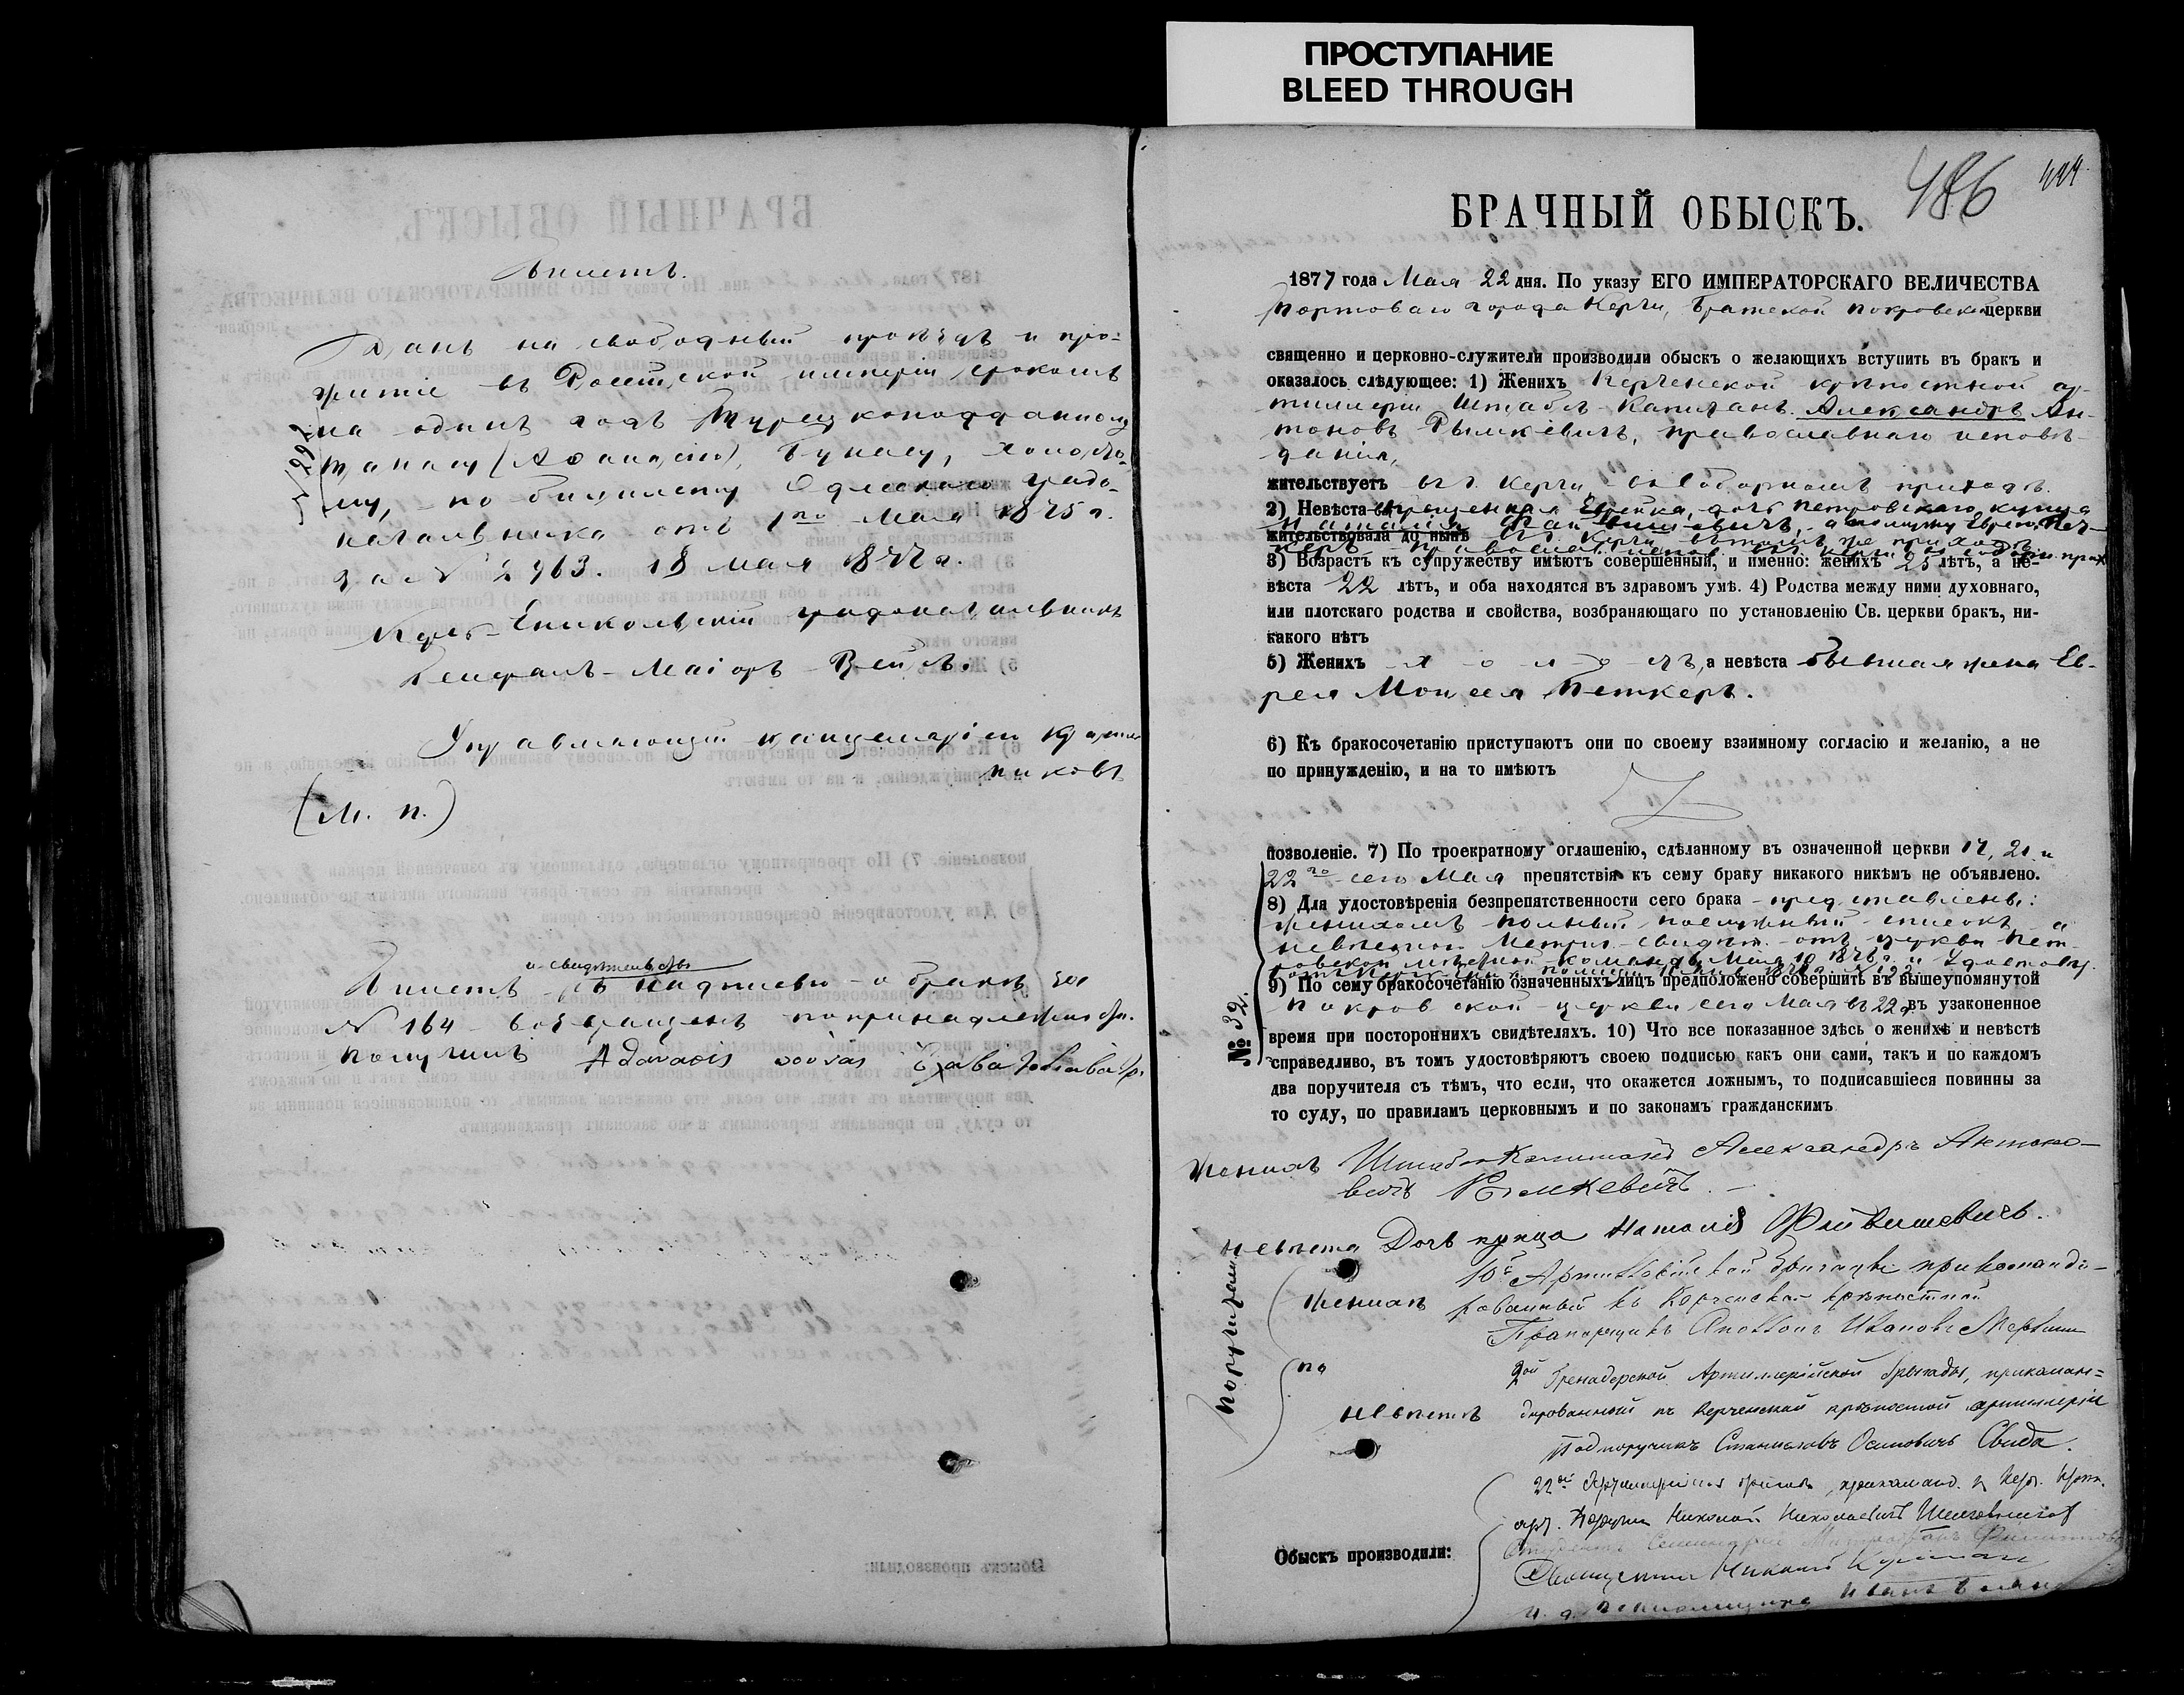 ПРОСТУПАНИЕ
BLEED THROUGH
Билетъ.
Данъ на свободный проѣздъ и про-
житіе въ Россійской имперіи срокомъ
на одинъ годъ Турецкоподданному
Танасу (Аѳанасію) Бунасу, холосто-
му, по билету Одесскаго градо-
начальника отъ 1го Мая 1875 г.
за № 2463. 18 Мая 1877 г.
Керчь-Еникольскій градоначальникъ
Генералъ-Маіоръ Вейсъ.
Управляющій канцеляріею
(М. п.)
и свидѣтельство
Билетъ съ надписью о бракѣ за
№ 164 возвращенъ по принадлежности.
Получилъ
486
БРАЧНЫЙ ОБЫСКЪ.
1877 года Мая 22 дня. По указу ЕГО ИМПЕРАТОРСКАГО ВЕЛИЧЕСТВА
Портоваго города Керчи, Братской Покровской церкви
священно и церковно-служители производили обыскъ о желающихъ вступить въ бракъ и
оказалось слѣдующее: 1) Женихъ Керченской крѣпостной ар-
тиллеріи Штабсъ-Капитанъ Александръ Ан-
тоновъ Рымкевичъ, православнаго исповѣ-
данія,
жительствуетъ въ г. Керчи въ Соборномъ приходѣ.
2) Невѣста крещенная Еврейка, дочь Петровскаго купца
Наталія Файвишевичъ, а по мужу Еврею Пет-
жительствовала до нынѣ въ г. Керчи въ томъ же приходѣ
3) Возрастъ къ супружеству имѣютъ совершенный, и именно: женихъ 25 лѣтъ, а не-
вѣста 22 лѣтъ, и оба находятся въ здравомъ умѣ. 4) Родства между ними духовнаго,
или плотскаго родства и свойства, возбраняющаго по установленію Св. церкви бракъ, ни-
какого нѣтъ
5) Женихъ х о л о стъ, а невѣста бывшая жена Ев-
рея Моисея Петкеръ.
6) Къ бракосочетанію приступаютъ они по своему взаимному согласію и желанію, а не
по принужденію, и на то имѣютъ
позволеніе. 7) По троекратному оглашенію, сдѣланному въ означенной церкви 17, 21 и
22го сего Мая препятствія къ сему браку никакого никѣмъ не объявлено.
8) Для удостовѣренія безпрепятственности сего брака представлены:
женихомъ полный послужный списокъ, а
невѣстою Метрич. свидѣт. отъ церкви Пет-
ровской мѣстной команды Мая 10 1876 г. и Удостовѣр.
9) По сему бракосочетанію означенныхъ лицъ предположено совершить въ вышеупомянутой
Покровской церкви сего Мая въ 22 д. въ узаконенное
№ 32.
время при постороннихъ свидѣтеляхъ. 10) Что все показанное здѣсь о женихѣ и невѣстѣ
справедливо, въ томъ удостовѣряютъ своею подписью какъ они сами, такъ и по каждомъ
два поручителя съ тѣмъ, что если, что окажется ложнымъ, то подписавшіеся повинны за
то суду, по правиламъ церковнымъ и по законамъ гражданскимъ
Женихъ Штабсъ-Капитанъ Александръ Антоно-
вичъ Рымкевичъ.
Невѣста Дочь купца Наталія Файвишевичъ.
Поручители
10й Артиллерійской бригады прикоманди-
Женихѣ рованный къ Керченской крѣпостной
Прапорщикъ Ивановъ
по
2ой Гренадерской Артиллерійской бригады, прикоман-
невѣстѣ дированный къ Керченской крѣпостной артиллеріи
Подпоручикъ Станиславъ Осиповичъ Свида.
22ой Артиллерійской бригады, прикоманд. къ Керч. крѣп.
арт. Поручикъ Николай Николаевичъ
Обыскъ производили:
Священникъ